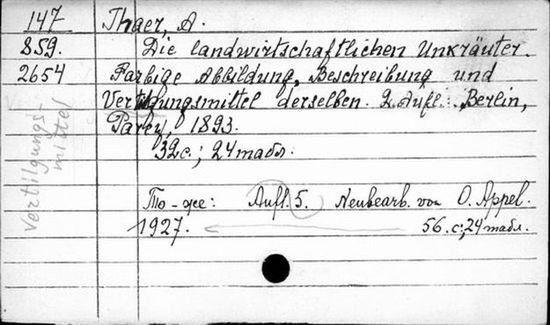 147 Thaer, A.
859. Die landwirtschaftlichen Unkräuter.
2654 Farbige Abbildung, Beschreibung und
Vertilgungsmittel derselben. 2. Aufl. Berlin,
Parey, 1893.
32 с.; 24 табл.
Vertilgungs-
mittel
То-же: Aufl. 5. Neubearb. von O. Appel.
1927. 56. с; 24 табл.